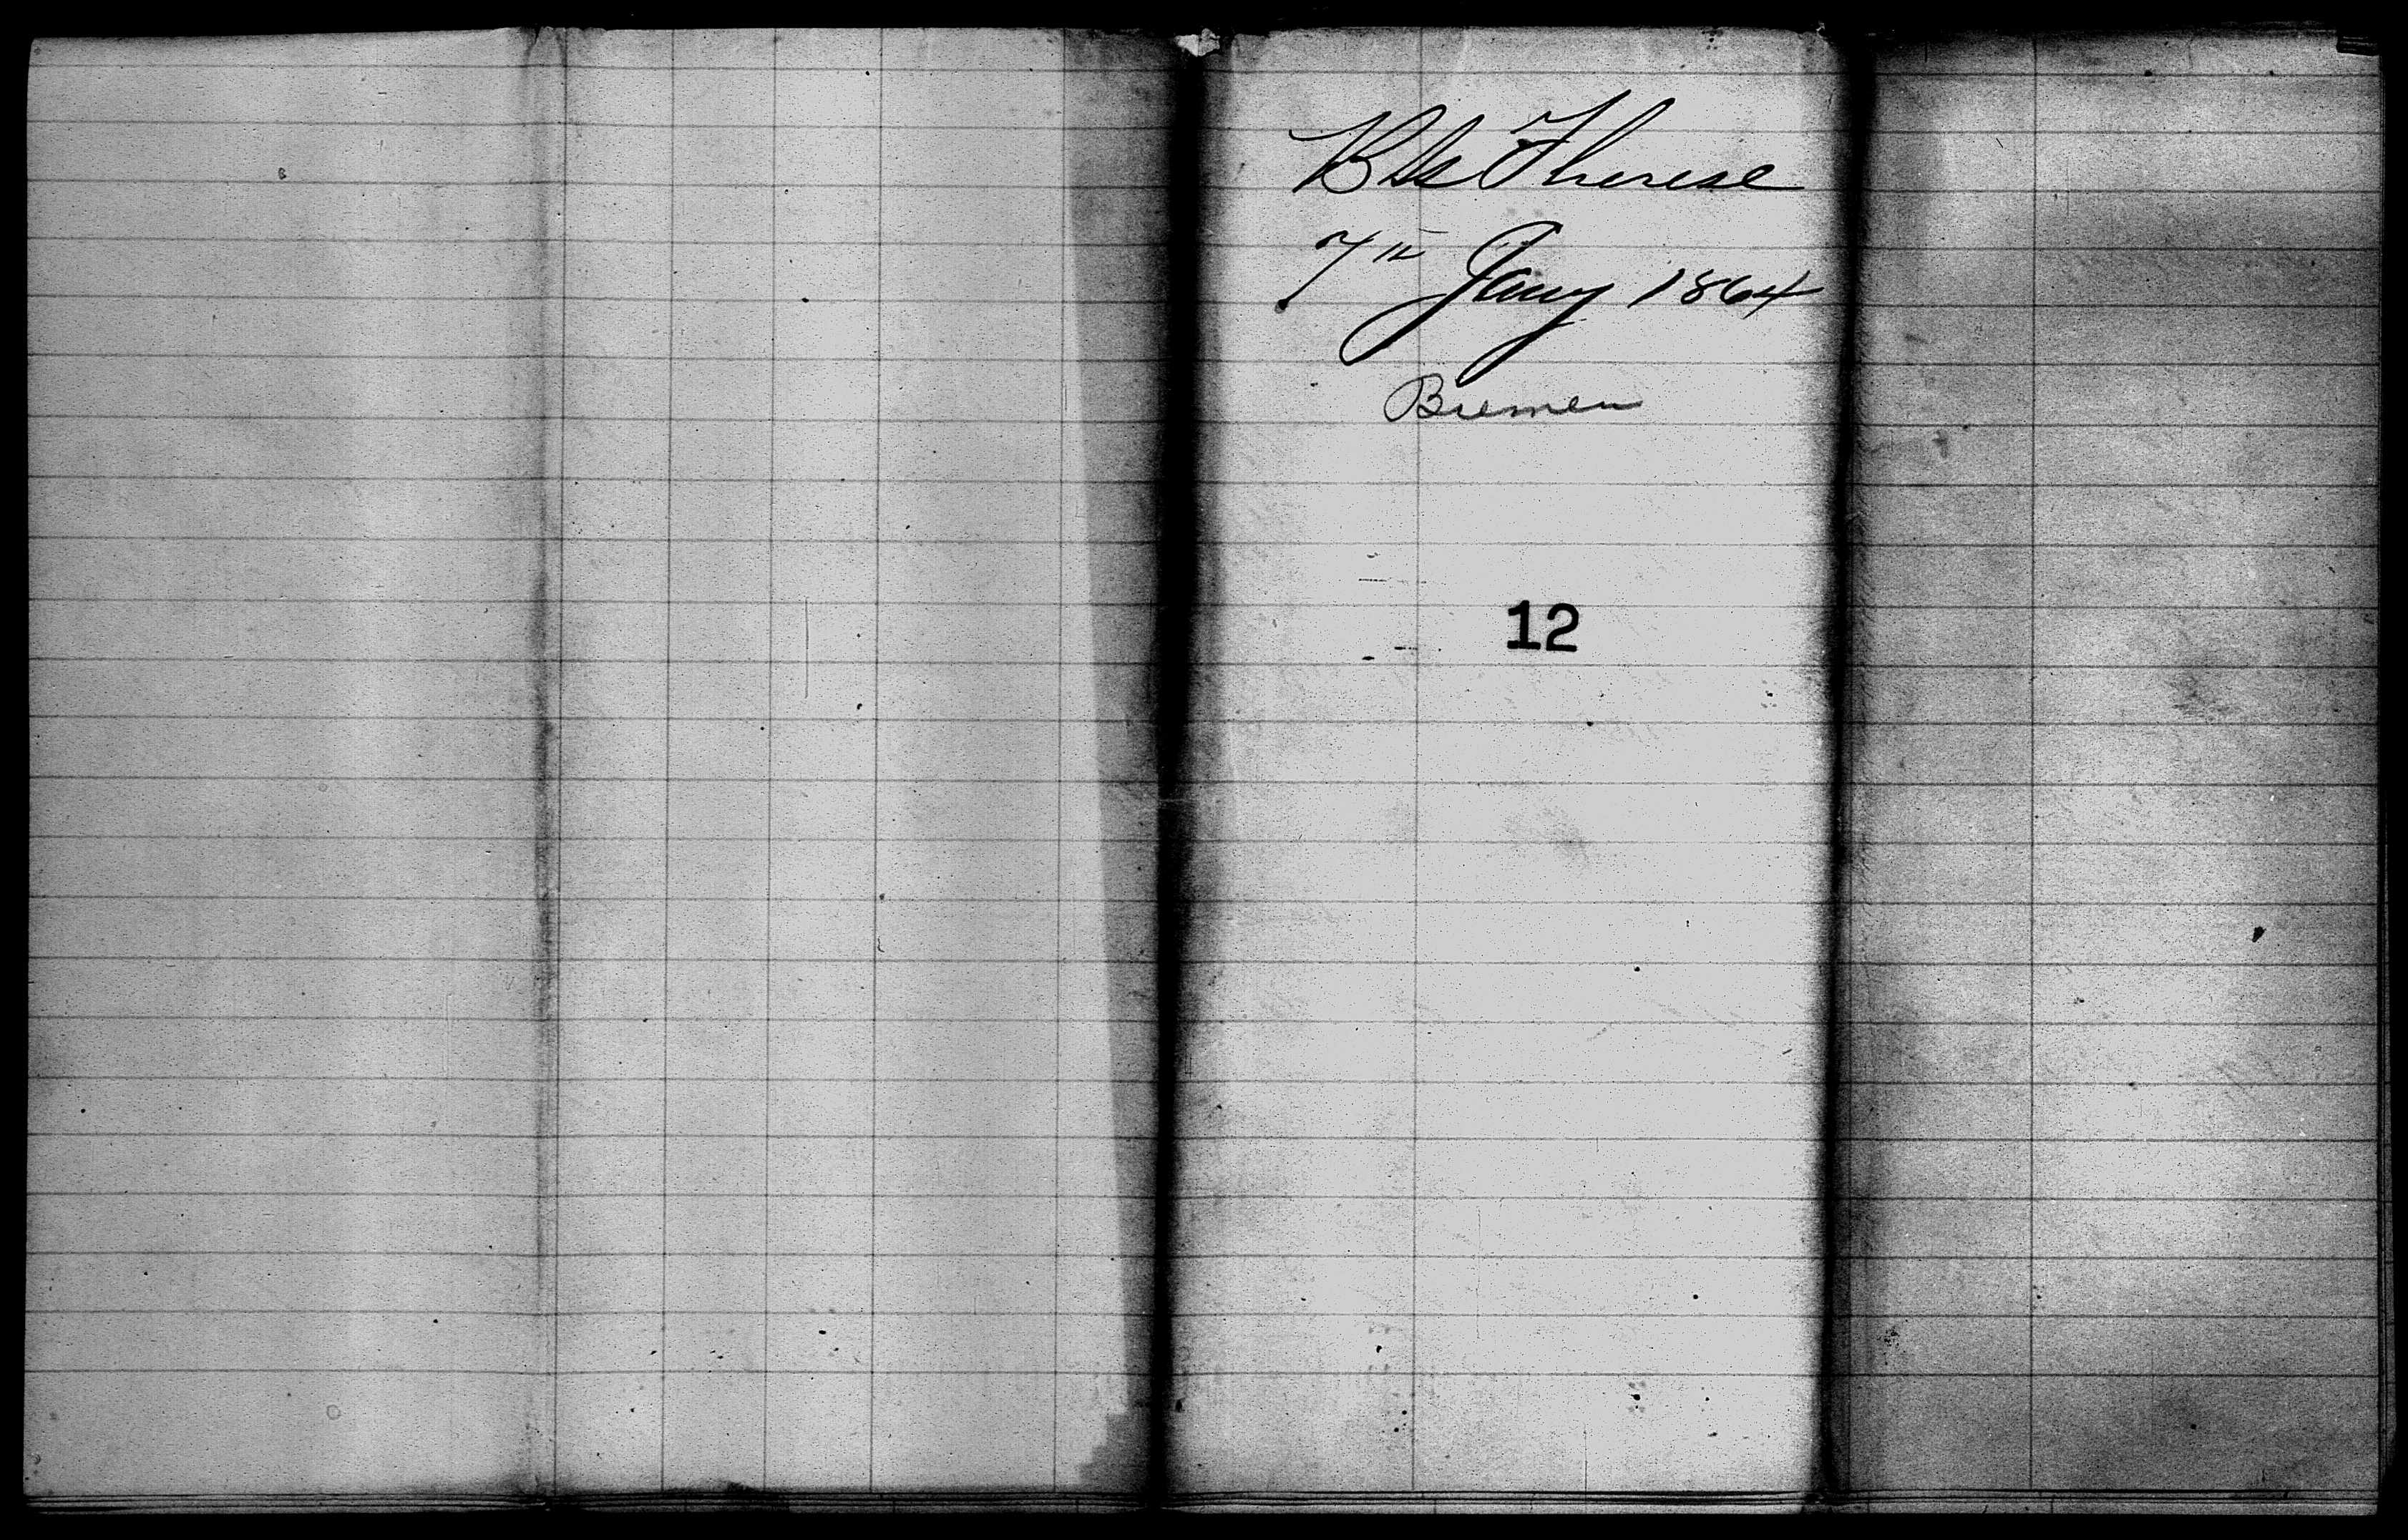 Bk Therese
7th Jany 1864
Bremen
12